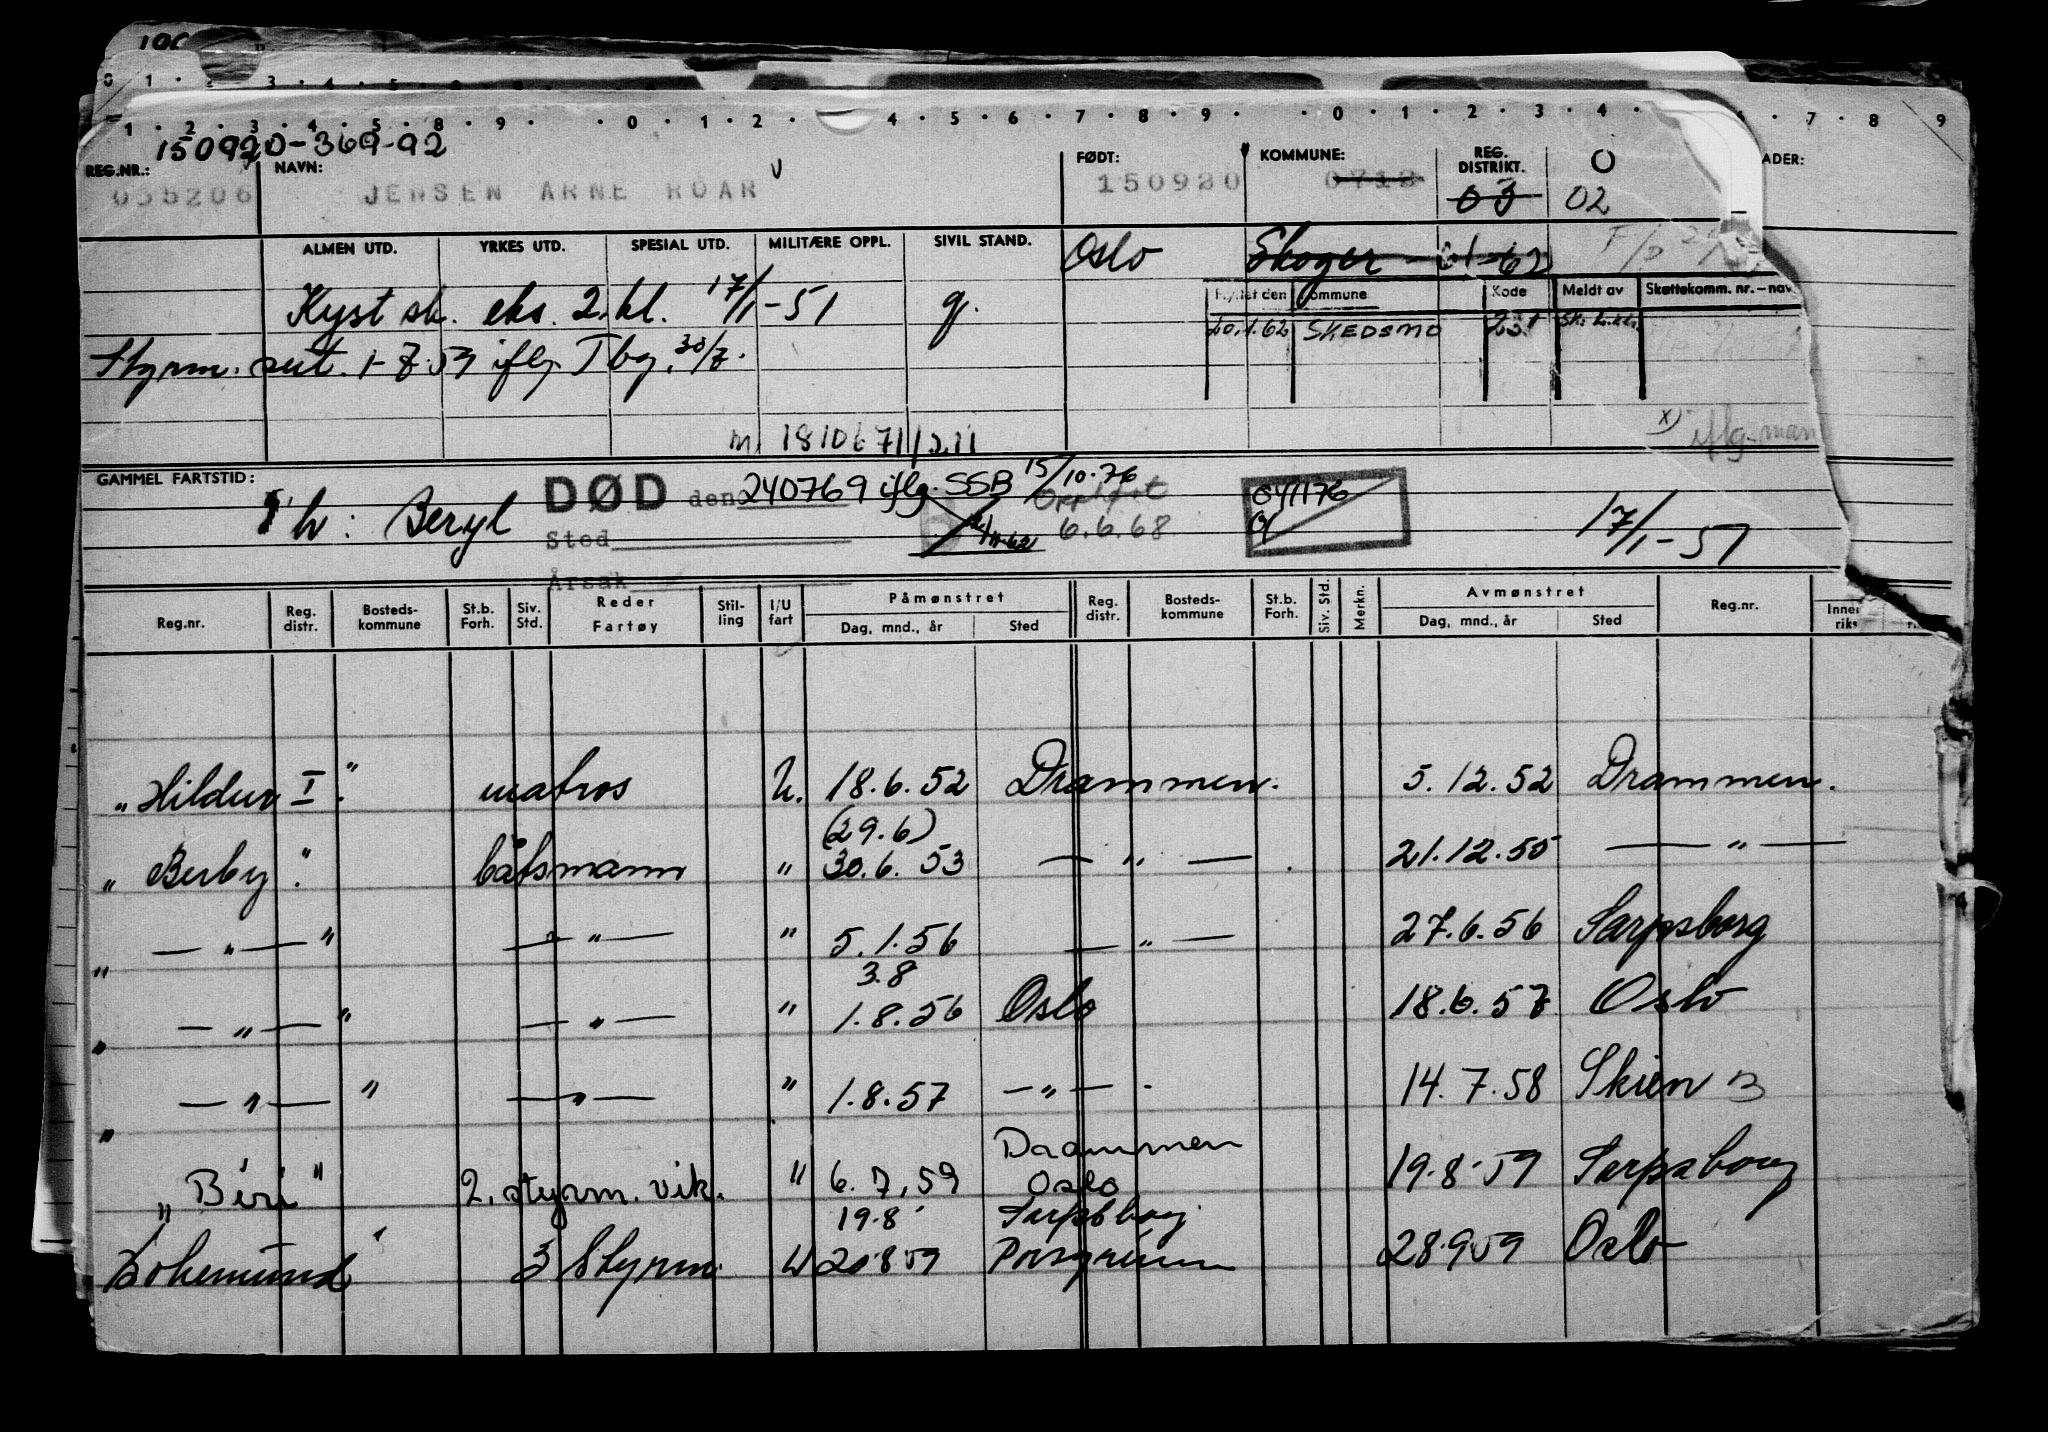 0 1 · 3 · 4 · 5 · 8 · 9 ·
1 · 2 · 3 · 4 · 5 · 8 · 9 · · 0 · 1 · 2 · · 4 · 5 · 6 · 7 · 8 · 9 · · 0 · 1 · 2 · 3 · 4 · 7 · 8 9
150920-369-92
REG.NR.: NAVN: FØDT: KOMMUNE: REG. DISTRIKT. O ADER:
055206 JENSEN ARNE ROAR 150920 0712 03 02
ALMEN UTD. YRKES UTD. SPESIAL UTD. MILITÆRE OPPL. SIVIL STAND. Oslo Skoger 01-62
Kyst sk. eks. 2. kl. 17/1-51 g.
Flyttet den Kommune Kode Meldt av Skattekomm. nr. – nav
20.1.62 SKEDSMO 231
Styrm. sert. 1-7.59 iflg. Tbg. 30/7.
x) iflg. man
m 18106711/211
GAMMEL FARTSTID: DØD den 240769 iflg. SSB 15/10-76 041176
"h": Beryl Sted 6.6.68 17/1-51
Årsak
Reg.nr. Reg. distr. Bosteds- kommune St.b. Forh. Siv. Std. Reder Fartøy Stil- ling I/U fart Påmønstret Dag, mnd., år Sted Reg. distr. Bosteds- kommune St.b. Forh. Siv. Std. Merkn. Avmønstret Dag, mnd., år Sted Reg.nr. Innen riks
"Hildur I". matros U. 18.6.52 Drammen. 5.12.52 Drammen.
(29.6)
"Berby". båtsmann " 30.6.53 — " — 21.12.55 — " —
" — " — " — " — " 5.1.56 — " — 27.6.56 Sarpsborg
3.8
" — " — " — " — " 1.8.56 Oslo 18.6.57 Oslo
" — " — " — " — " 1.8.57 — " — 14.7.58 Skien
Drammen
"Biri" 2. styrm. vik. " 6.7.59 Oslo 19.8.59 Sarpsborg
19.8 Sarpsborg
Bohemund" 3 Styrm. U 20859 Porsgrunn 28.959 Oslo